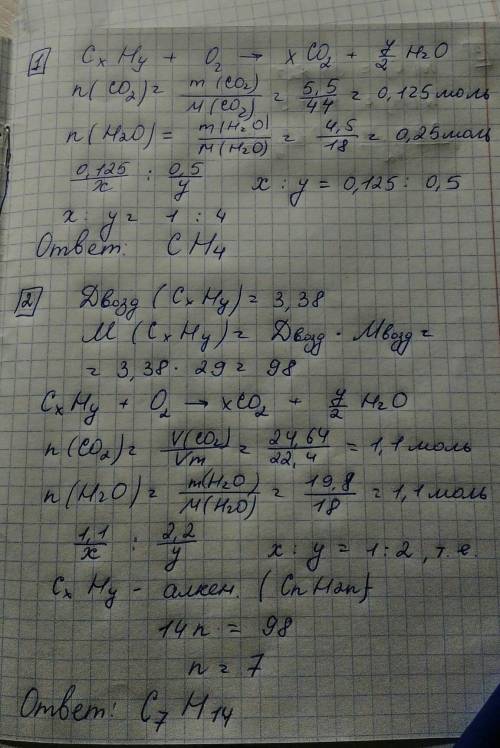 1 CxHy + O2 → xCO2 + y/2 H2O
n(CO2) = m(CO2)/M(CO2) = 5,5/44 = 0,125 моль
n(H2O) = m(H2O)/M(H2O) = 4,5/18 = 0,25 моль
0,125/x : 0,5/y x : y = 0,125 : 0,5
x : y = 1 : 4
Ответ: CH4
2 Dвозд (CxHy) = 3,38
M (CxHy) = Dвозд · Mвозд =
= 3,38 · 29 = 98
CxHy + O2 → xCO2 + y/2 H2O
n(CO2) = V(CO2)/Vm = 24,64/22,4 = 1,1 моль
n(H2O) = m(H2O)/M(H2O) = 19,8/18 = 1,1 моль
1,1/x : 2,2/y x : y = 1 : 2, т.е.
CxHy - алкен. (CnH2n)
14n = 98
n = 7
Ответ: C7H14